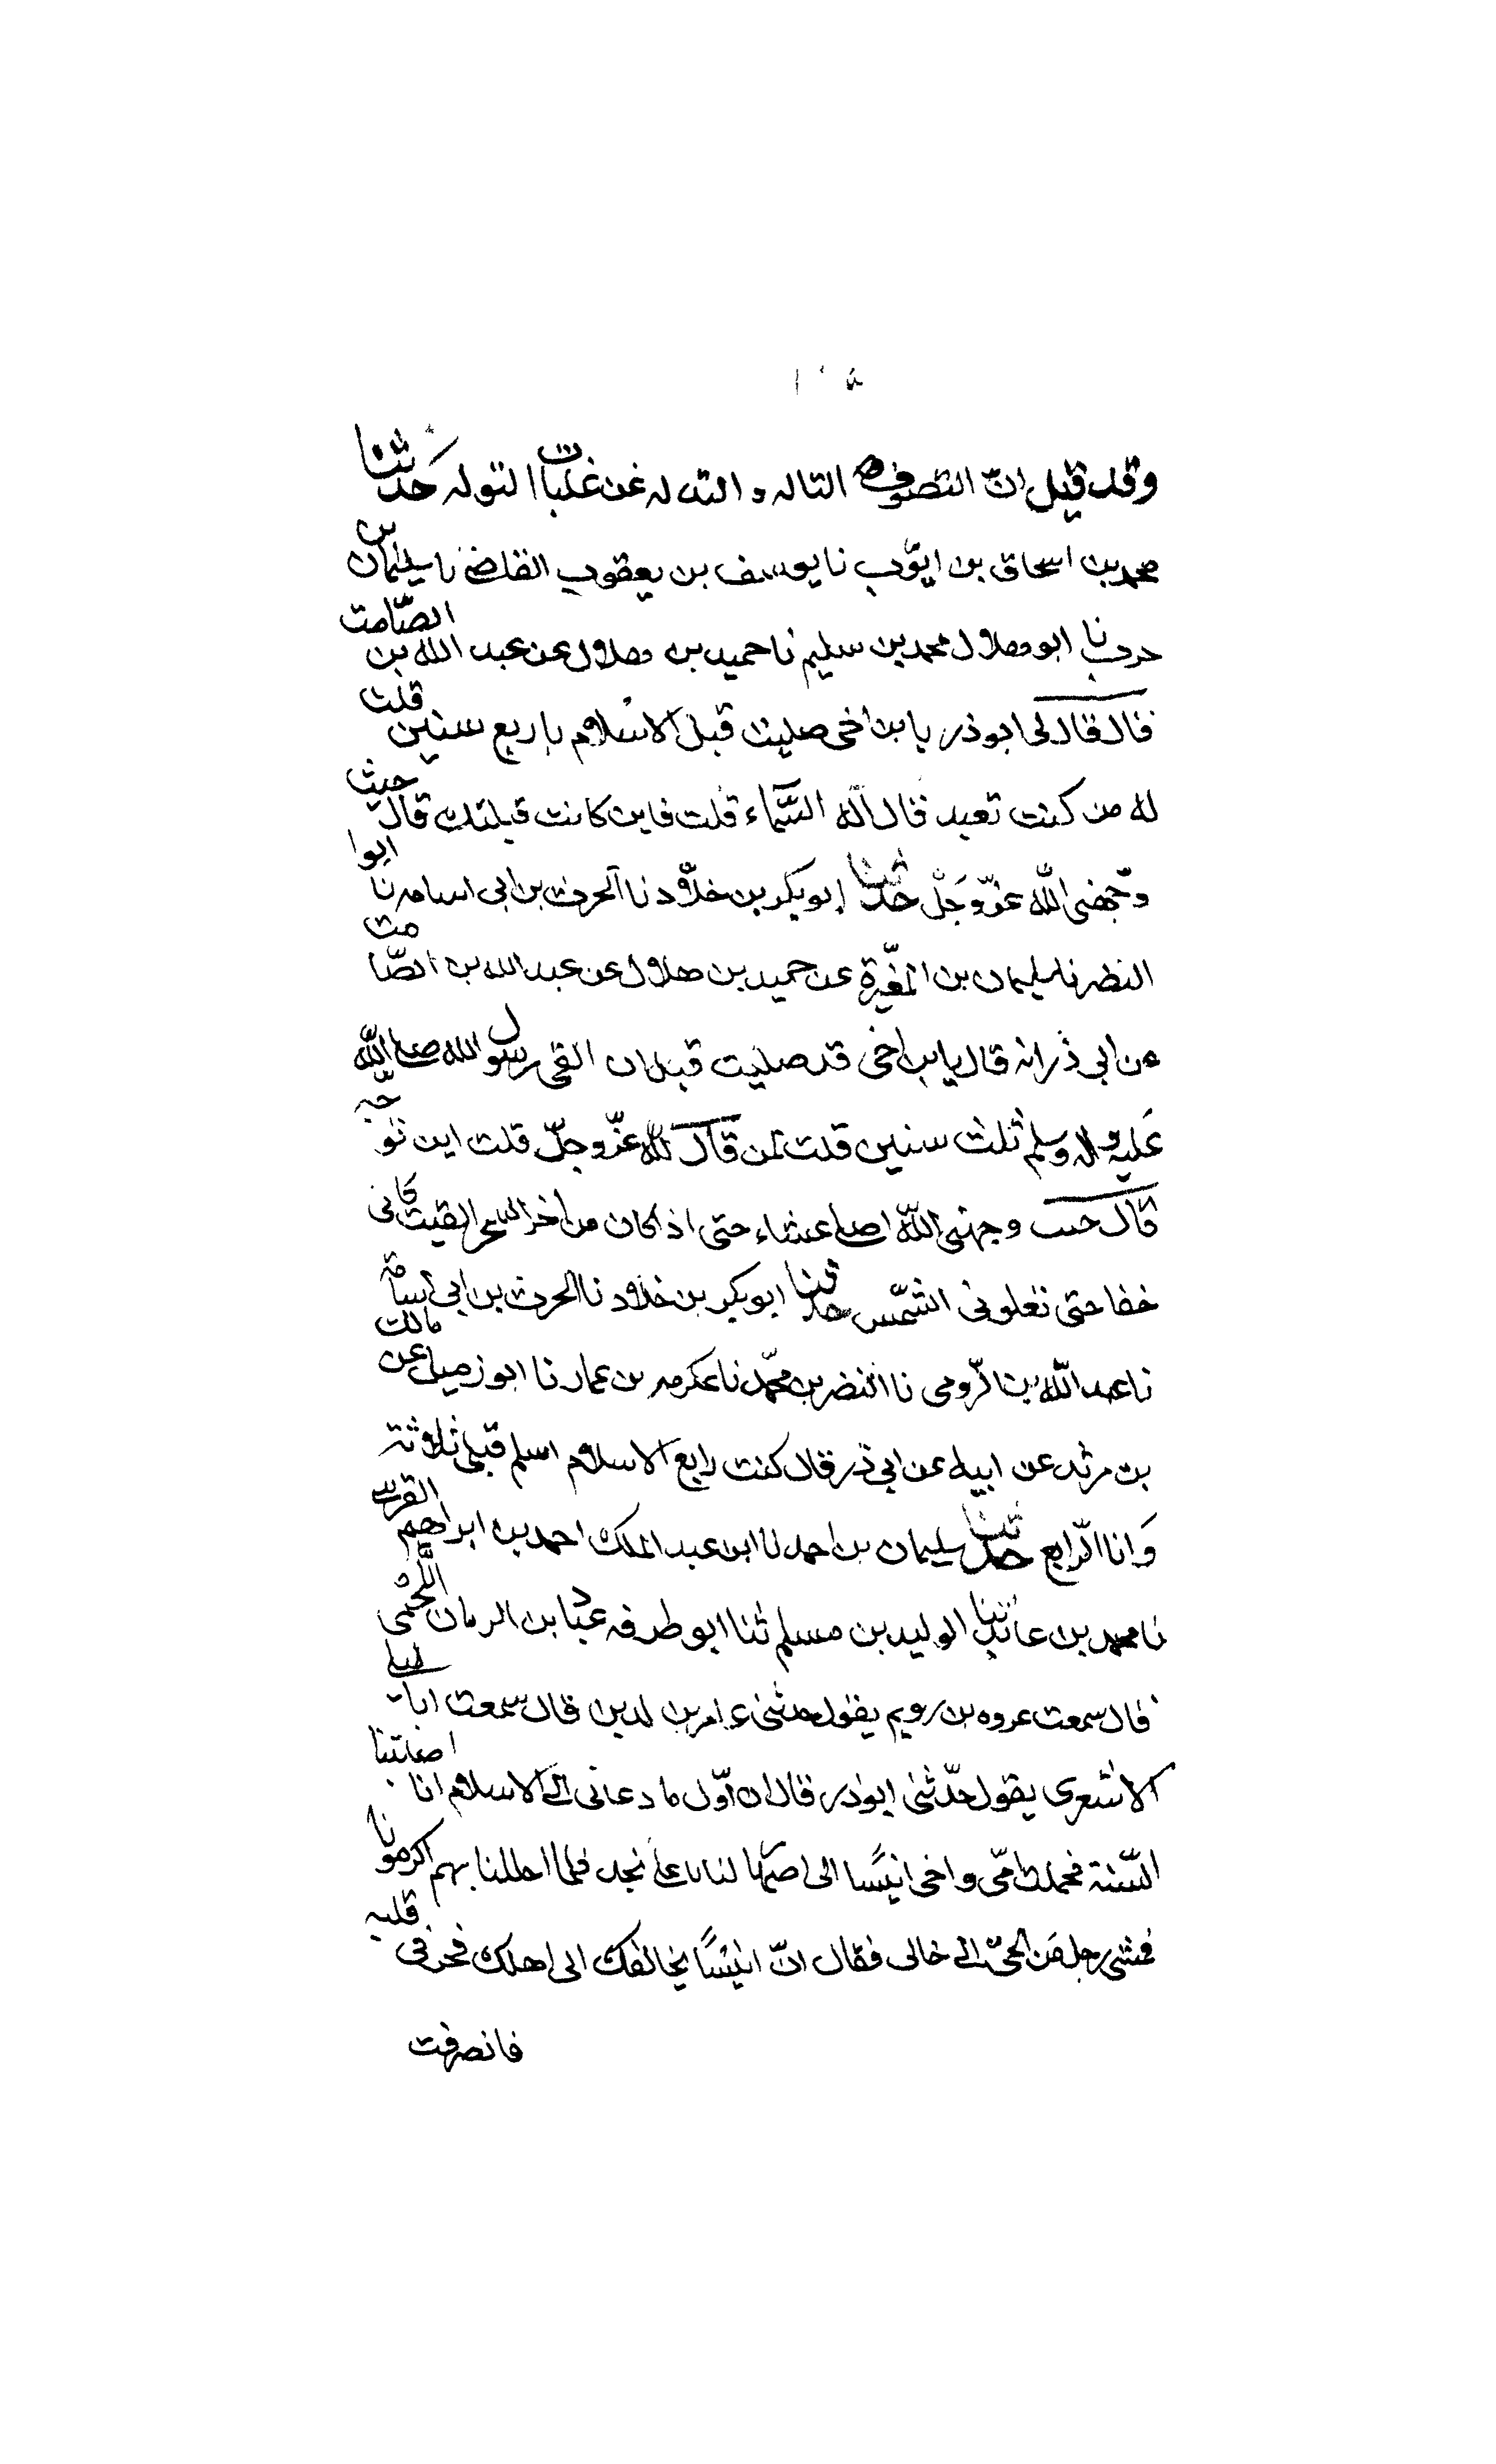 وقد قيل ان التصوف التاله و التدله عن غلبات التوله حدثنا
محمد بن اسحاق بن ايّوب نا يوسف بن يعقوب القاضي نا سليمان بن
حرب نا ابو هلال محمد بن سليم نا حميد بن هلال عن عبد الله بن الصّامت
قال قال لى ابو ذر يا بن اخى صليت قبل الاسلام باربع سنين قلت
له من كنت تعبد قال اله السّماء قلت فاين كانت قبلتك قال حيث
وجّهنى الله عزّ وَجلّ حدثنا ابو بكر بن خلّاد نا الحرث بن ابى اسامه نا ابوا
النضر نا سليمان بن المغيرة عن حميد بن هلال عن عبد الله بن الصّامت
عن ابى ذر انه قال يا بن اخى قد صليت قبل ان القى رسول الله صلى الله
عَليه واله وسلم ثلث سنين قلت لمن قال لله عزّ وجلّ قلت اين توجّه
قال حيث وجهنى الله اصلى عشاء حتى اذا كان من اخر السحر القيت كانى
خفا حتى تعلونى الشمّس حدثنا ابو بكر بن خلاد نا الحرث بن ابى اسامة
نا عبد الله بن الرّومى نا النضر بن محمّد نا عكرمه بن عمار نا ابو زميل عن مالك
بن مرثد عن ابيه عن ابى ذر قال كنت رابع الاسلام اسلم قبلى ثلاثة
وَانا الرّابع حدثنا سليمان بن احمد نا ابو عبد الملك احمد بن ابراهيم القرشى
نا محمد بن عائذ ثنا الوليد بن مسلم ثنا ابو طرفه عباد بن الريان اللّخمى
قال سمعت عروه بن رويم يقول حدثنى عامر بن لدين قال سمعت ابا ليلى
الاشعرى يقول حدّثنى ابو ذر قال ان اوّل ما دعانى الى الاسلام انا اصابتنا
السّنة فحملت امّى واخى انيسًا الى اصهار لنا باعلى نجد فلما احللنا بهم اكرمونا
فمشى رجل مَن الحىّ الى خالى فقال انّ انيسًا يخالفك الى اهلك فحز فى قلبه
فانصرفت